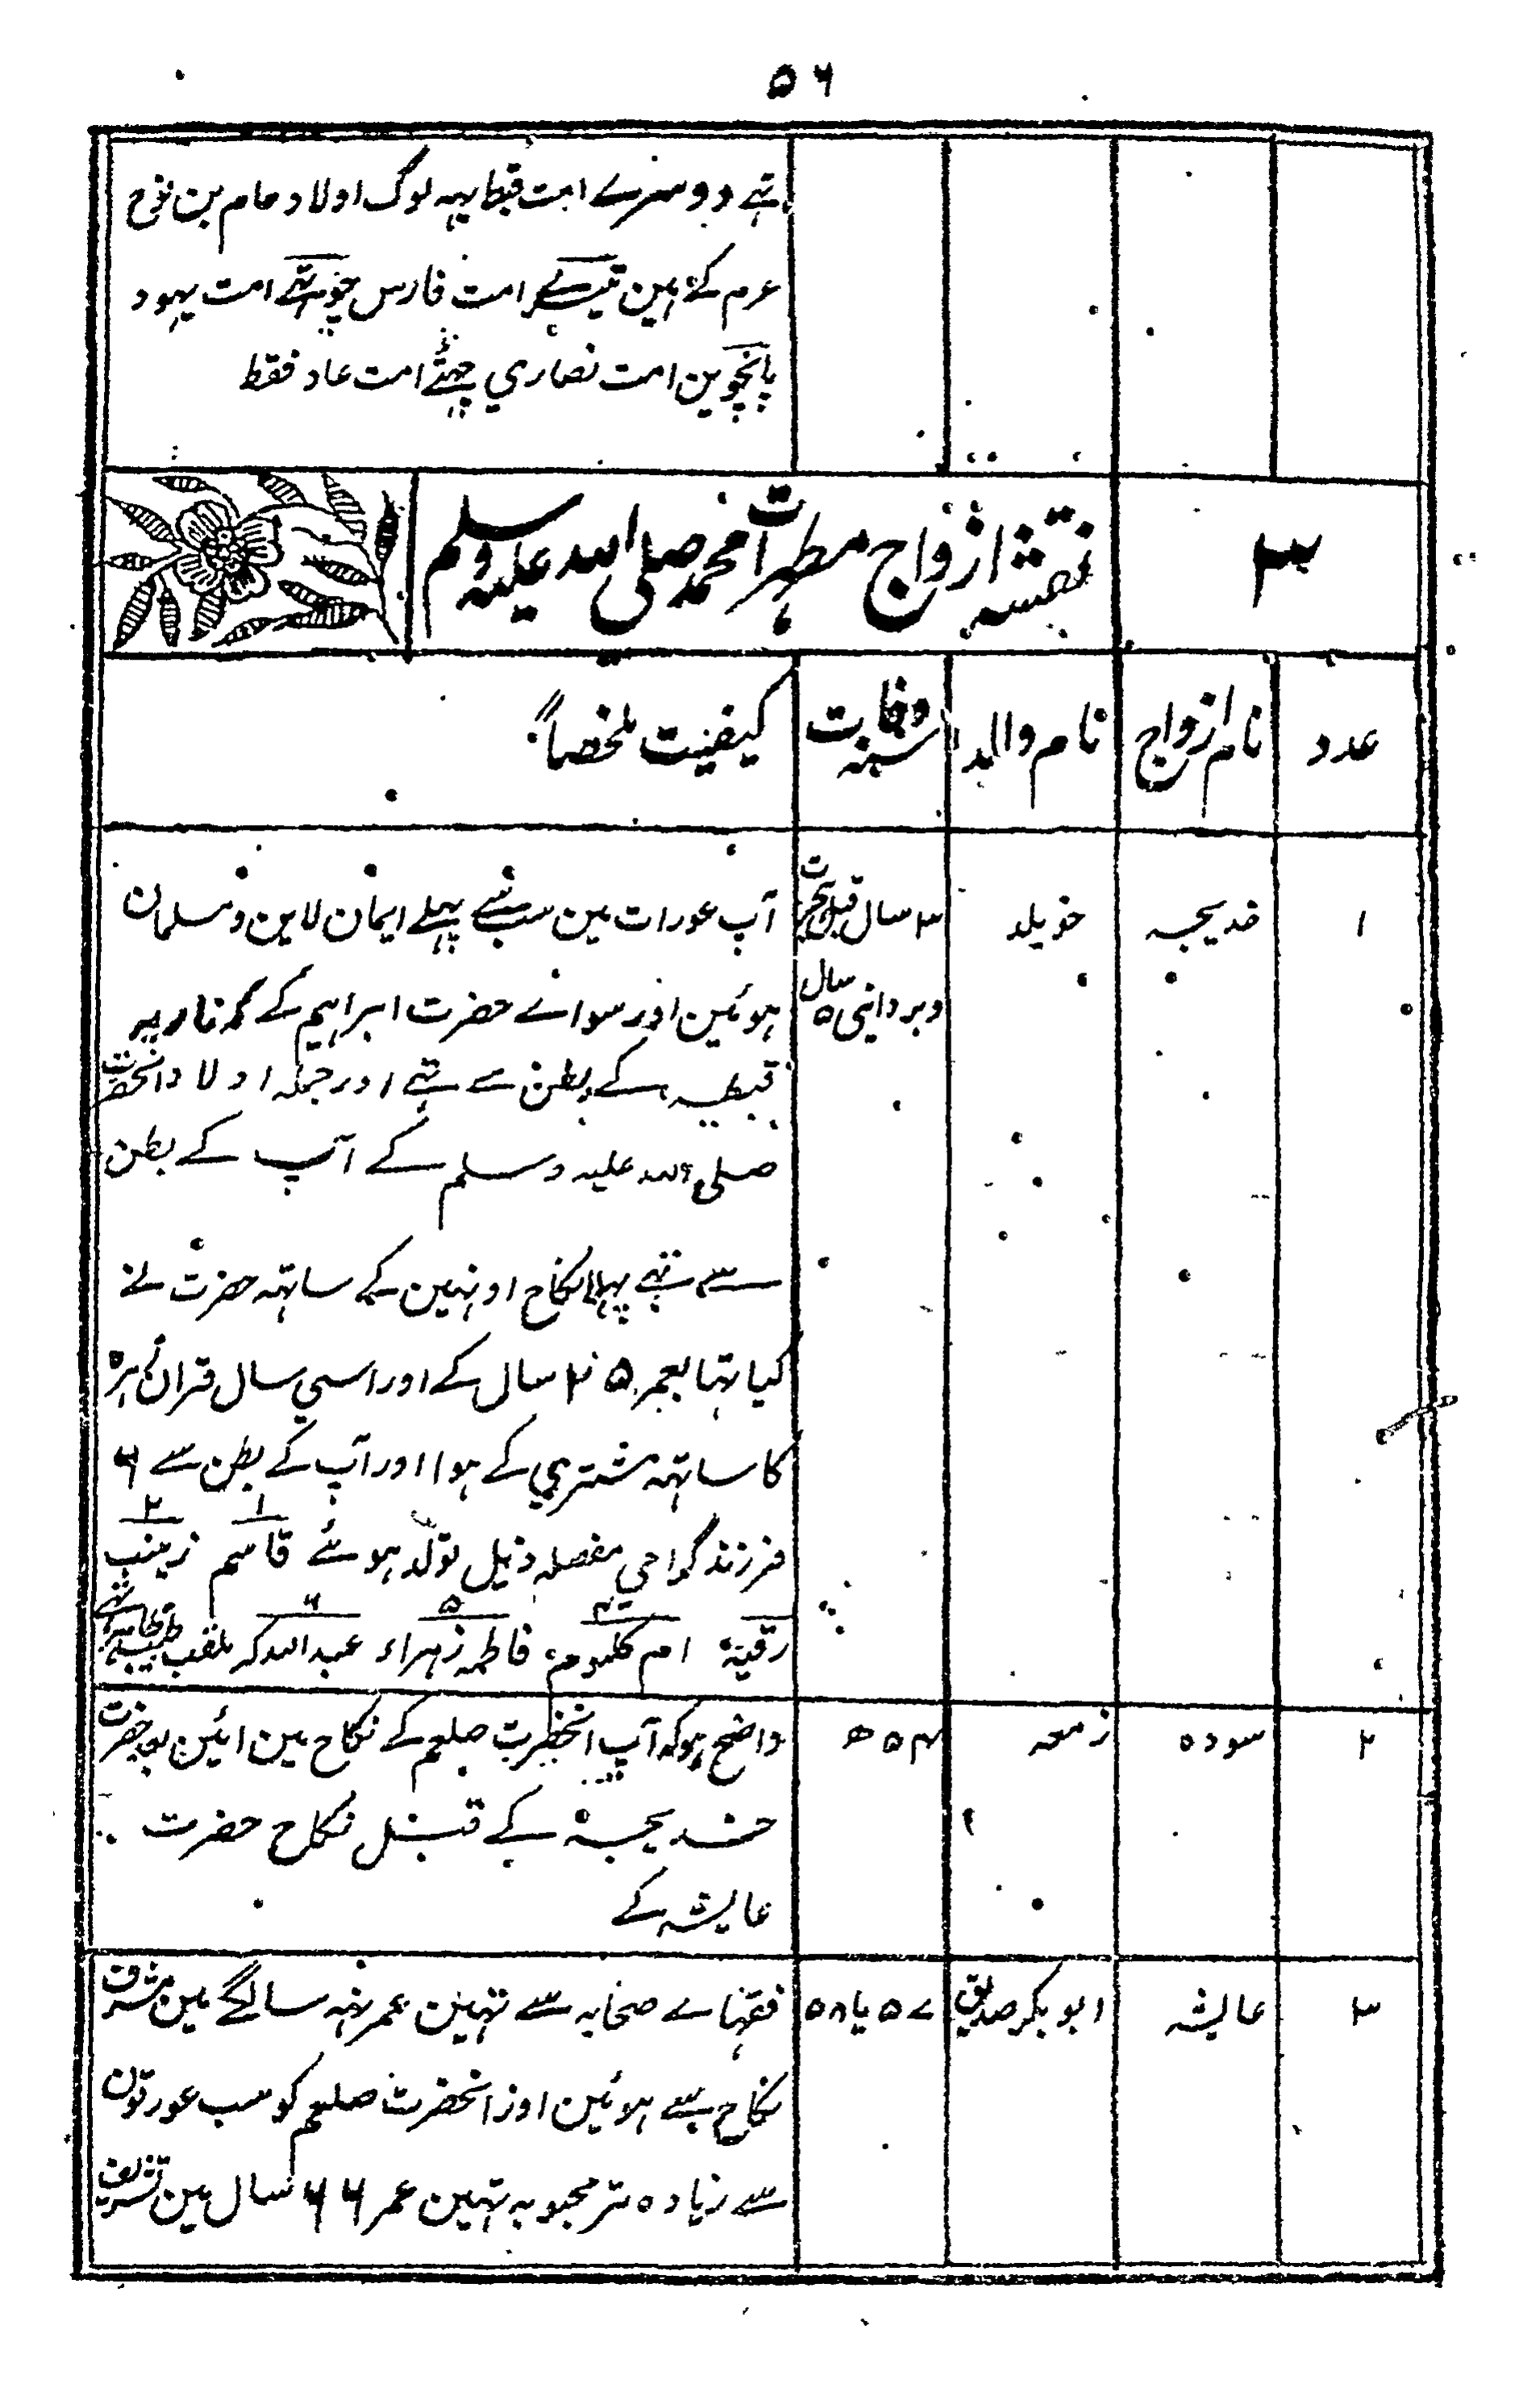 ۵۶
تہے دوسرے امت قبط یہہ لوگ اولاد حام بن نوح
عرم کے ہین تیسرے امت فارس چوتہے امت یہود
پانچوین امت نصاری چہٹے امت عاد فقط
۳
نقشہ ازواج مطہرات محمد صلی اللہ علیہ وسلم
عدد
نام ازواج
نام والد
سنہ وفات
کیفیت ملخصاً
۱
خدیجہ
خویلد
۳ سال قبل ہجرت
وبروایتی ۵ سال
آپ عورات مین سب سے پہلے ایمان لاین و مسلمان
ہوئین اور سوائے حضرت ابراہیم کے کہ ماریہ
قبطیہ کے بطن سے تہے اور جملہ اولاد آنحضرت
صلی اللہ علیہ وسلم کے آپ کے بطن
سے تہے پہلا نکاح اونہین کے ساتہہ حضرت نے
کیا تہا بعمر ۲۵ سال کے اور اسی سال قران زہرہ
کا ساتہہ مشتری کے ہوا اور آپ کے بطن سے ۶
فرزند گرامی مفصلہ ذیل تولد ہوئے قاسم ۱ زینب ۲
رقیہ ام کلثوم ۴ فاطمہ زہراء ۵ عبداللہ ۶ کہ ملقب طیب طاہر تہے
۲
سودہ
زمعہ
۵۴ھ
واضح ہو کہ آپ آنحضرت صلعم کے نکاح مین ائین بعد حضرت
خدیجہ کے قبل نکاح حضرت
عایشہ کے
۳
عایشہ
ابوبکر صدیق
۵۷ یا ۵۸
فقہاے صحابہ سے تہین عمر نہہ سالگے مین مشرف
نکاح سے ہوئین اور آنحضرت صلعم کو سب عورتون
سے زیادہ تر محبوبہ تہین عمر ۶۶ سال مین تشریف